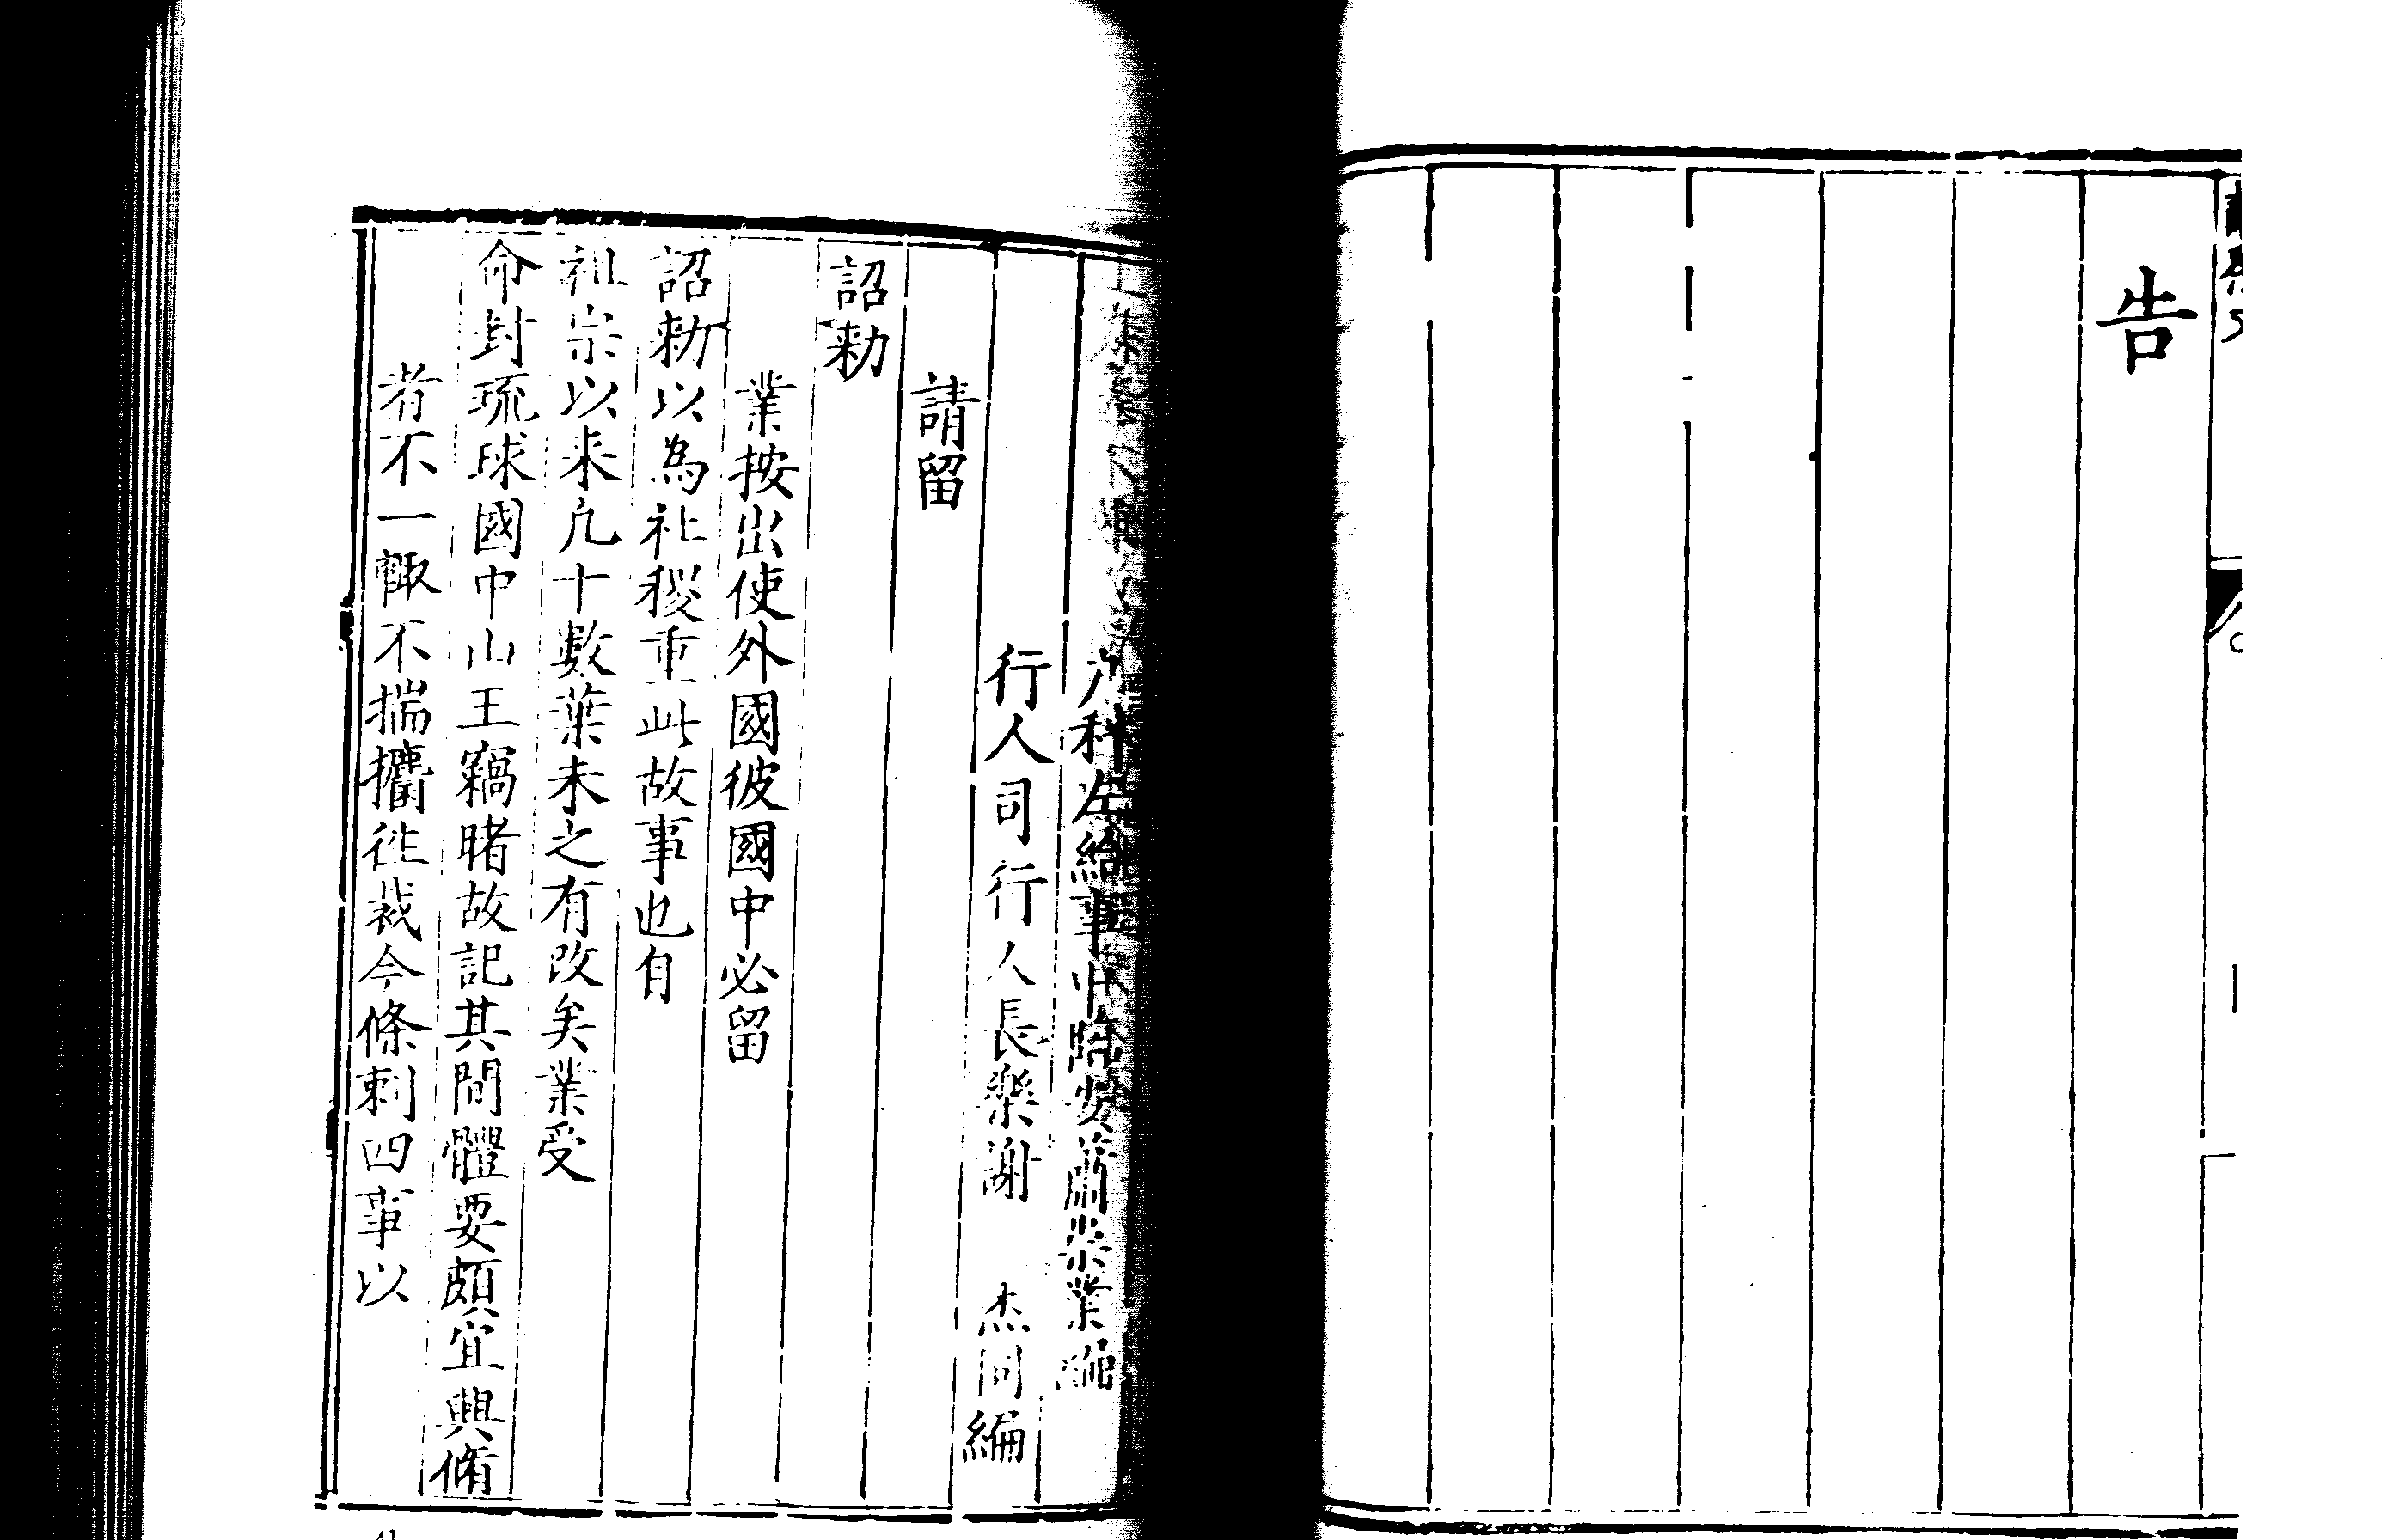 告
科左給事中臨安蕭崇業編
行人司行人長樂謝 杰同編
請留
詔勅
業按出使外國彼國中必留
詔勅以為社稷重此故事也自
祖宗以来凢十數葉未之有改矣業受
命封琉球國中山王竊睹故記其間體要頗宜興脩
者不一輙不揣攟徃裁今條剌四事以